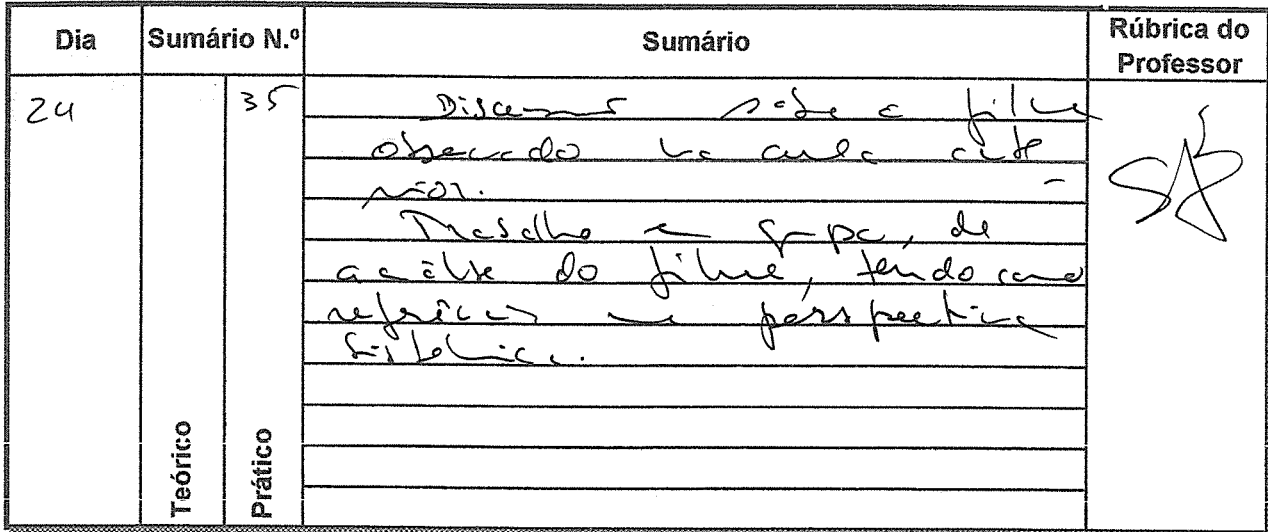 Dia Sumário N.º Sumário Rúbrica do Professor
24 35 Discussão sobre o filme
observado na aula ante
rior.
Trabalho em grupo, de
análise do filme, tendo como
referência uma perspectiva
sistémica.
Teórico
Prático